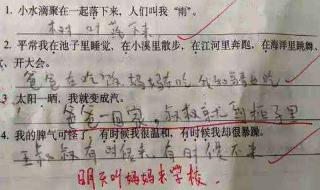 1. 小水滴聚在一起落下来，人们叫我“雨”。
树叶落下
2. 平常我在池子里睡觉，在小溪里散步，在江河里奔跑，在海洋里跳舞、
、开大会。
爸爸在吃饭 妈妈在吃
3 太阳一晒，我就变成汽。
爸爸一回家，叔叔就到柜子里
4. 我的脾气可怪了，有时候我很温和，有时候我却很暴躁。
叔叔有时候来有时候不来
明天叫妈妈来学校.